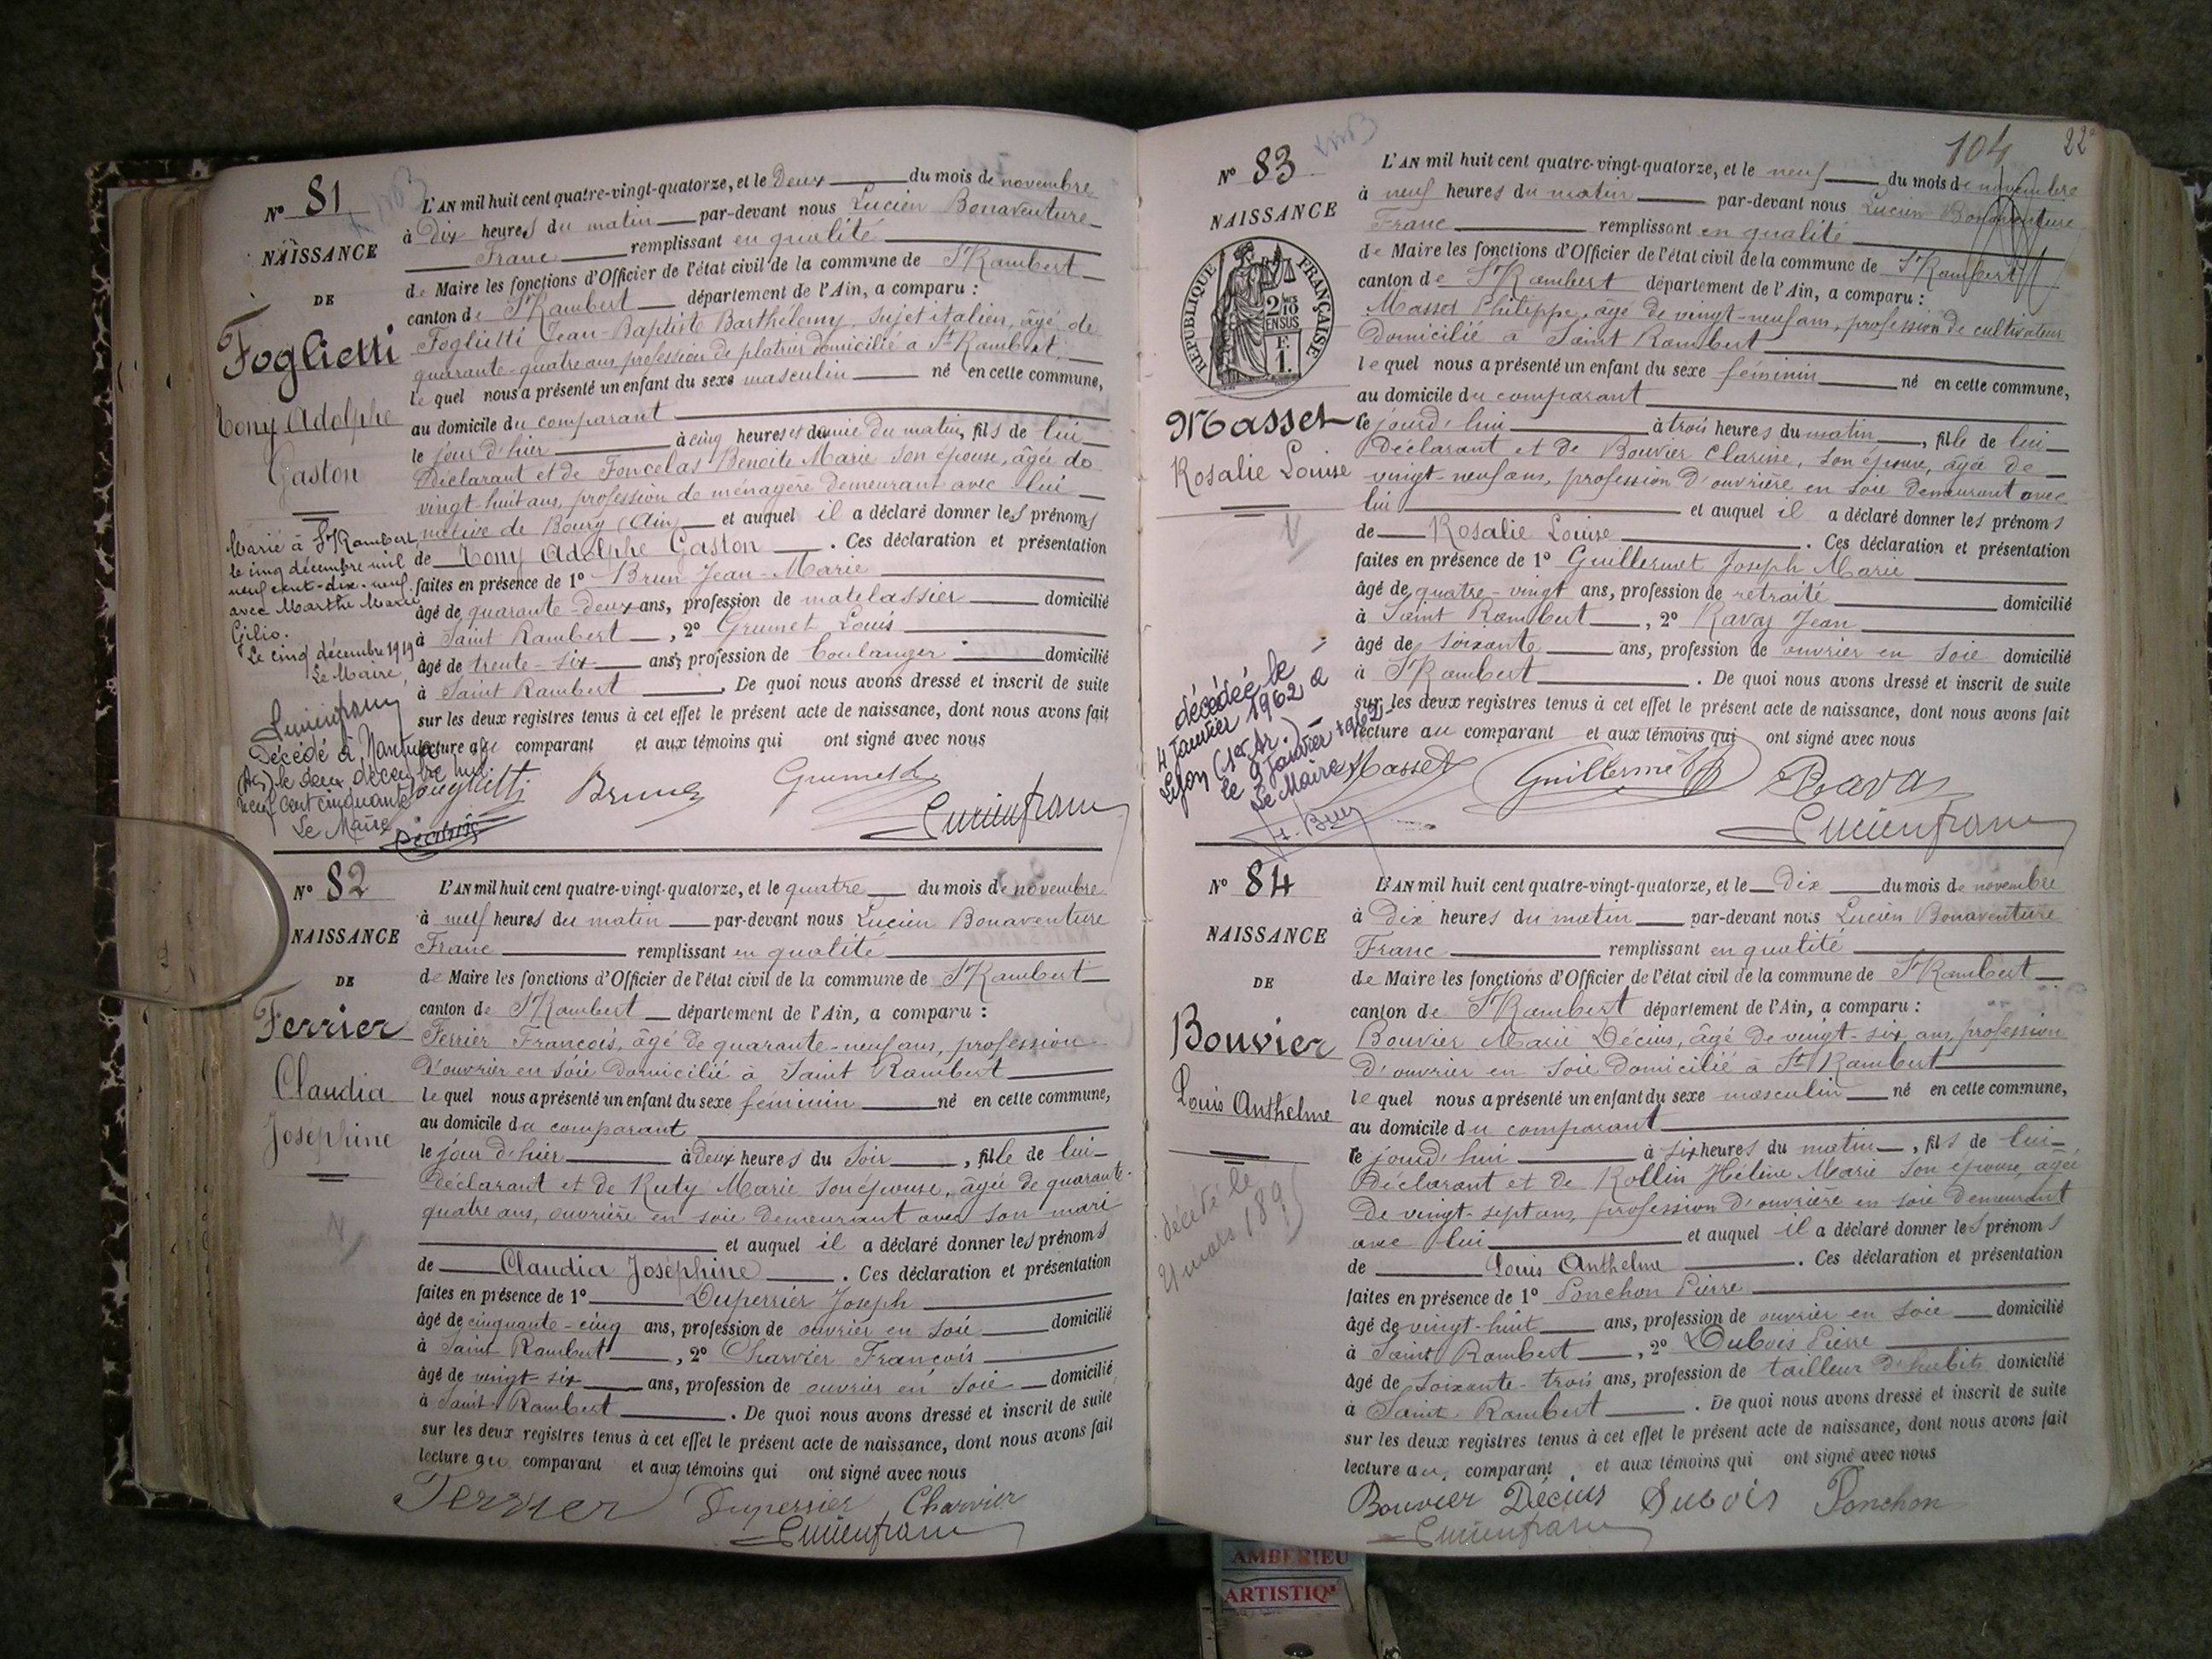 N° 81
NAISSANCE
DE
Foglietti
Tony Adolphe
Gaston
Marié à St Rambert
le cinq décembre mil
neuf cent-dix-neuf
avec Marthe Marie
Gilio.
Le cinq décembre 1919
Le Maire
Lucienfranc
Décédé à Nantua
(Ain) le deux décembre mil
neuf cent cinquante
Le Maire
L'AN mil huit cent quatre-vingt-quatorze, et le Deux du mois de novembre
à Dix heures du matin par-devant nous Lucien Bonaventure
Franc remplissant en qualité
de Maire les fonctions d'Officier de l'état civil de la commune de St Rambert
canton de St Rambert département de l'Ain, a comparu :
Foglietti Jean-Baptiste Barthelemy, sujet italien, âgé de
quarante-quatre ans profession de platrier domicilié à St Rambert
le quel nous a présenté un enfant du sexe masculin né en cette commune,
au domicile du comparant
le jour d'hier à cinq heures et demie du matin, fils de lui
Déclarant et de Foncelas Benoite Marie son épouse, âgée de
vingt-huit ans, profession de ménagère demeurant avec lui
native de Bourg (Ain) et auquel il a déclaré donner les prénoms
de Tony Adolphe Gaston . Ces déclaration et présentation
faites en présence de 1° Brun Jean-Marie
âgé de quarante-deux ans, profession de matelassier domicilié
à Saint Rambert , 2° Grumet Louis
âgé de trente-six ans, profession de boulanger domicilié
à Saint Rambert . De quoi nous avons dressé et inscrit de suite
sur les deux registres tenus à cet effet le présent acte de naissance, dont nous avons fait
lecture au comparant et aux témoins qui ont signé avec nous
Foglietti Brun Grumet L
Lucienfranc
N° 82
NAISSANCE
DE
Ferrier
Claudia
Joséphine
L'AN mil huit cent quatre-vingt-quatorze, et le quatre du mois de novembre
à neuf heures du matin par-devant nous Lucien Bonaventure
Franc remplissant en qualité
de Maire les fonctions d'Officier de l'état civil de la commune de St Rambert
canton de St Rambert département de l'Ain, a comparu :
Ferrier François, âgé de quarante-neuf ans, profession
d'ouvrier en soie domicilié à Saint Rambert
le quel nous a présenté un enfant du sexe féminin né en cette commune,
au domicile du comparant
le jour d'hier à deux heures du soir , fille de lui
déclarant et de Ruty Marie son épouse, âgée de quarante-
quatre ans, ouvrière en soie demeurant avec son mari
et auquel il a déclaré donner les prénoms
de Claudia Joséphine . Ces déclaration et présentation
faites en présence de 1° Duperrier Joseph
âgé de cinquante-cinq ans, profession de ouvrier en soie domicilié
à Saint Rambert , 2° Charvier François
âgé de vingt-six ans, profession de ouvrier en soie domicilié
à Saint Rambert . De quoi nous avons dressé et inscrit de suite
sur les deux registres tenus à cet effet le présent acte de naissance, dont nous avons fait
lecture au comparant et aux témoins qui ont signé avec nous
Ferrier Duperrier Charvier
Lucienfranc
104 22
N° 83
NAISSANCE
REPUBLIQUE FRANÇAISE
2/10 EN SUS
F. 1.
Masset
Rosalie Louise
décédée le
4 Janvier 1962 à
Lyon (1er Ar.)
le 9 Janvier 1962
Le Maire
L'AN mil huit cent quatre-vingt-quatorze, et le neuf du mois de novembre
à neuf heures du matin par-devant nous Lucien Bonaventure
Franc remplissant en qualité
de Maire les fonctions d'Officier de l'état civil de la commune de St Rambert
canton de St Rambert département de l'Ain, a comparu :
Masset Philippe, âgé de vingt-neuf ans, profession de cultivateur
domicilié à Saint Rambert
le quel nous a présenté un enfant du sexe féminin né en cette commune,
au domicile du comparant
le jourd'hui à trois heures du matin , fille de lui
Déclarant et de Bouvier Clarisse, son épouse, âgée de
vingt-neuf ans, profession d'ouvrière en soie demeurant avec
lui et auquel il a déclaré donner les prénoms
de Rosalie Louise . Ces déclaration et présentation
faites en présence de 1° Guillermet Joseph Marie
âgé de quatre-vingt ans, profession de retraité domicilié
à Saint Rambert , 2° Ravas Jean
âgé de soixante ans, profession de ouvrier en soie domicilié
à St Rambert . De quoi nous avons dressé et inscrit de suite
sur les deux registres tenus à cet effet le présent acte de naissance, dont nous avons fait
lecture au comparant et aux témoins qui ont signé avec nous
Masset Guillermet Ravas
Lucienfranc
N° 84
NAISSANCE
DE
Bouvier
Louis Anthelme
décédé le
mars 1895
L'AN mil huit cent quatre-vingt-quatorze, et le Dix du mois de novembre
à Dix heures du matin par-devant nous Lucien Bonaventure
Franc remplissant en qualité
de Maire les fonctions d'Officier de l'état civil de la commune de St Rambert
canton de St Rambert département de l'Ain, a comparu :
Bouvier Marie Décius, âgé de vingt-six ans, profession
d'ouvrier en soie domicilié à St Rambert
le quel nous a présenté un enfant du sexe masculin né en cette commune,
au domicile du comparant
le jourd'hui à six heures du matin , fils de lui
Déclarant et de Rollin Hélène Marie son épouse, âgée
de vingt-sept ans, profession d'ouvrière en soie demeurant
avec lui et auquel il a déclaré donner les prénoms
de Louis Anthelme . Ces déclaration et présentation
faites en présence de 1° Ponchon Pierre
âgé de vingt-huit ans, profession de ouvrier en soie domicilié
à Saint Rambert , 2° Dubois Pierre
âgé de soixante-trois ans, profession de tailleur d'habits domicilié
à Saint Rambert . De quoi nous avons dressé et inscrit de suite
sur les deux registres tenus à cet effet le présent acte de naissance, dont nous avons fait
lecture au comparant et aux témoins qui ont signé avec nous
Bouvier Décius Dubois Ponchon
Lucienfranc
AMBERIEU
ARTISTIQ